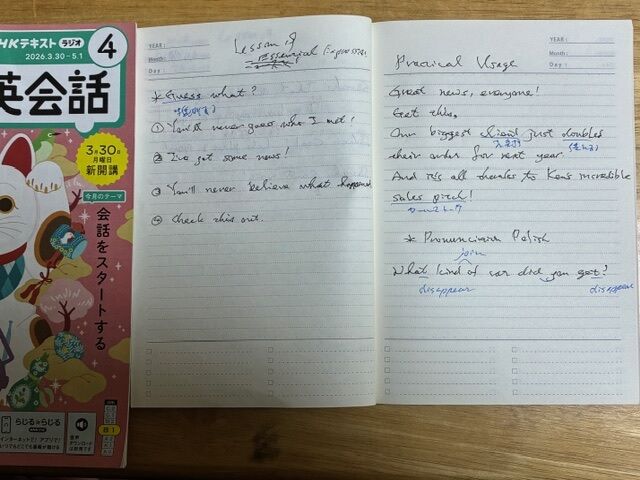 NHKテキスト ラジオ
2026.3.30-5.1
4
英会話
3月30日
月曜日
新開講
今月のテーマ
会話をスタートする
らじる★らじる
音声
ダウンロード
YEAR:
Month:
Day:
Lesson 8
Essential Expressions
* Guess what?
① You'll never guess who I met!
② I've got some news!
③ You'll never believe what happened
④ Check this out.
YEAR:
Month:
Day:
Practical Usage
Great news, everyone!
Get this.
Our biggest client just doubles
their order for next year.
And it's all thanks to Ken's incredible
sales pitch!
セールストーク
* Pronunciation Polish
join
What kind of car did you get?
disappear
disappear